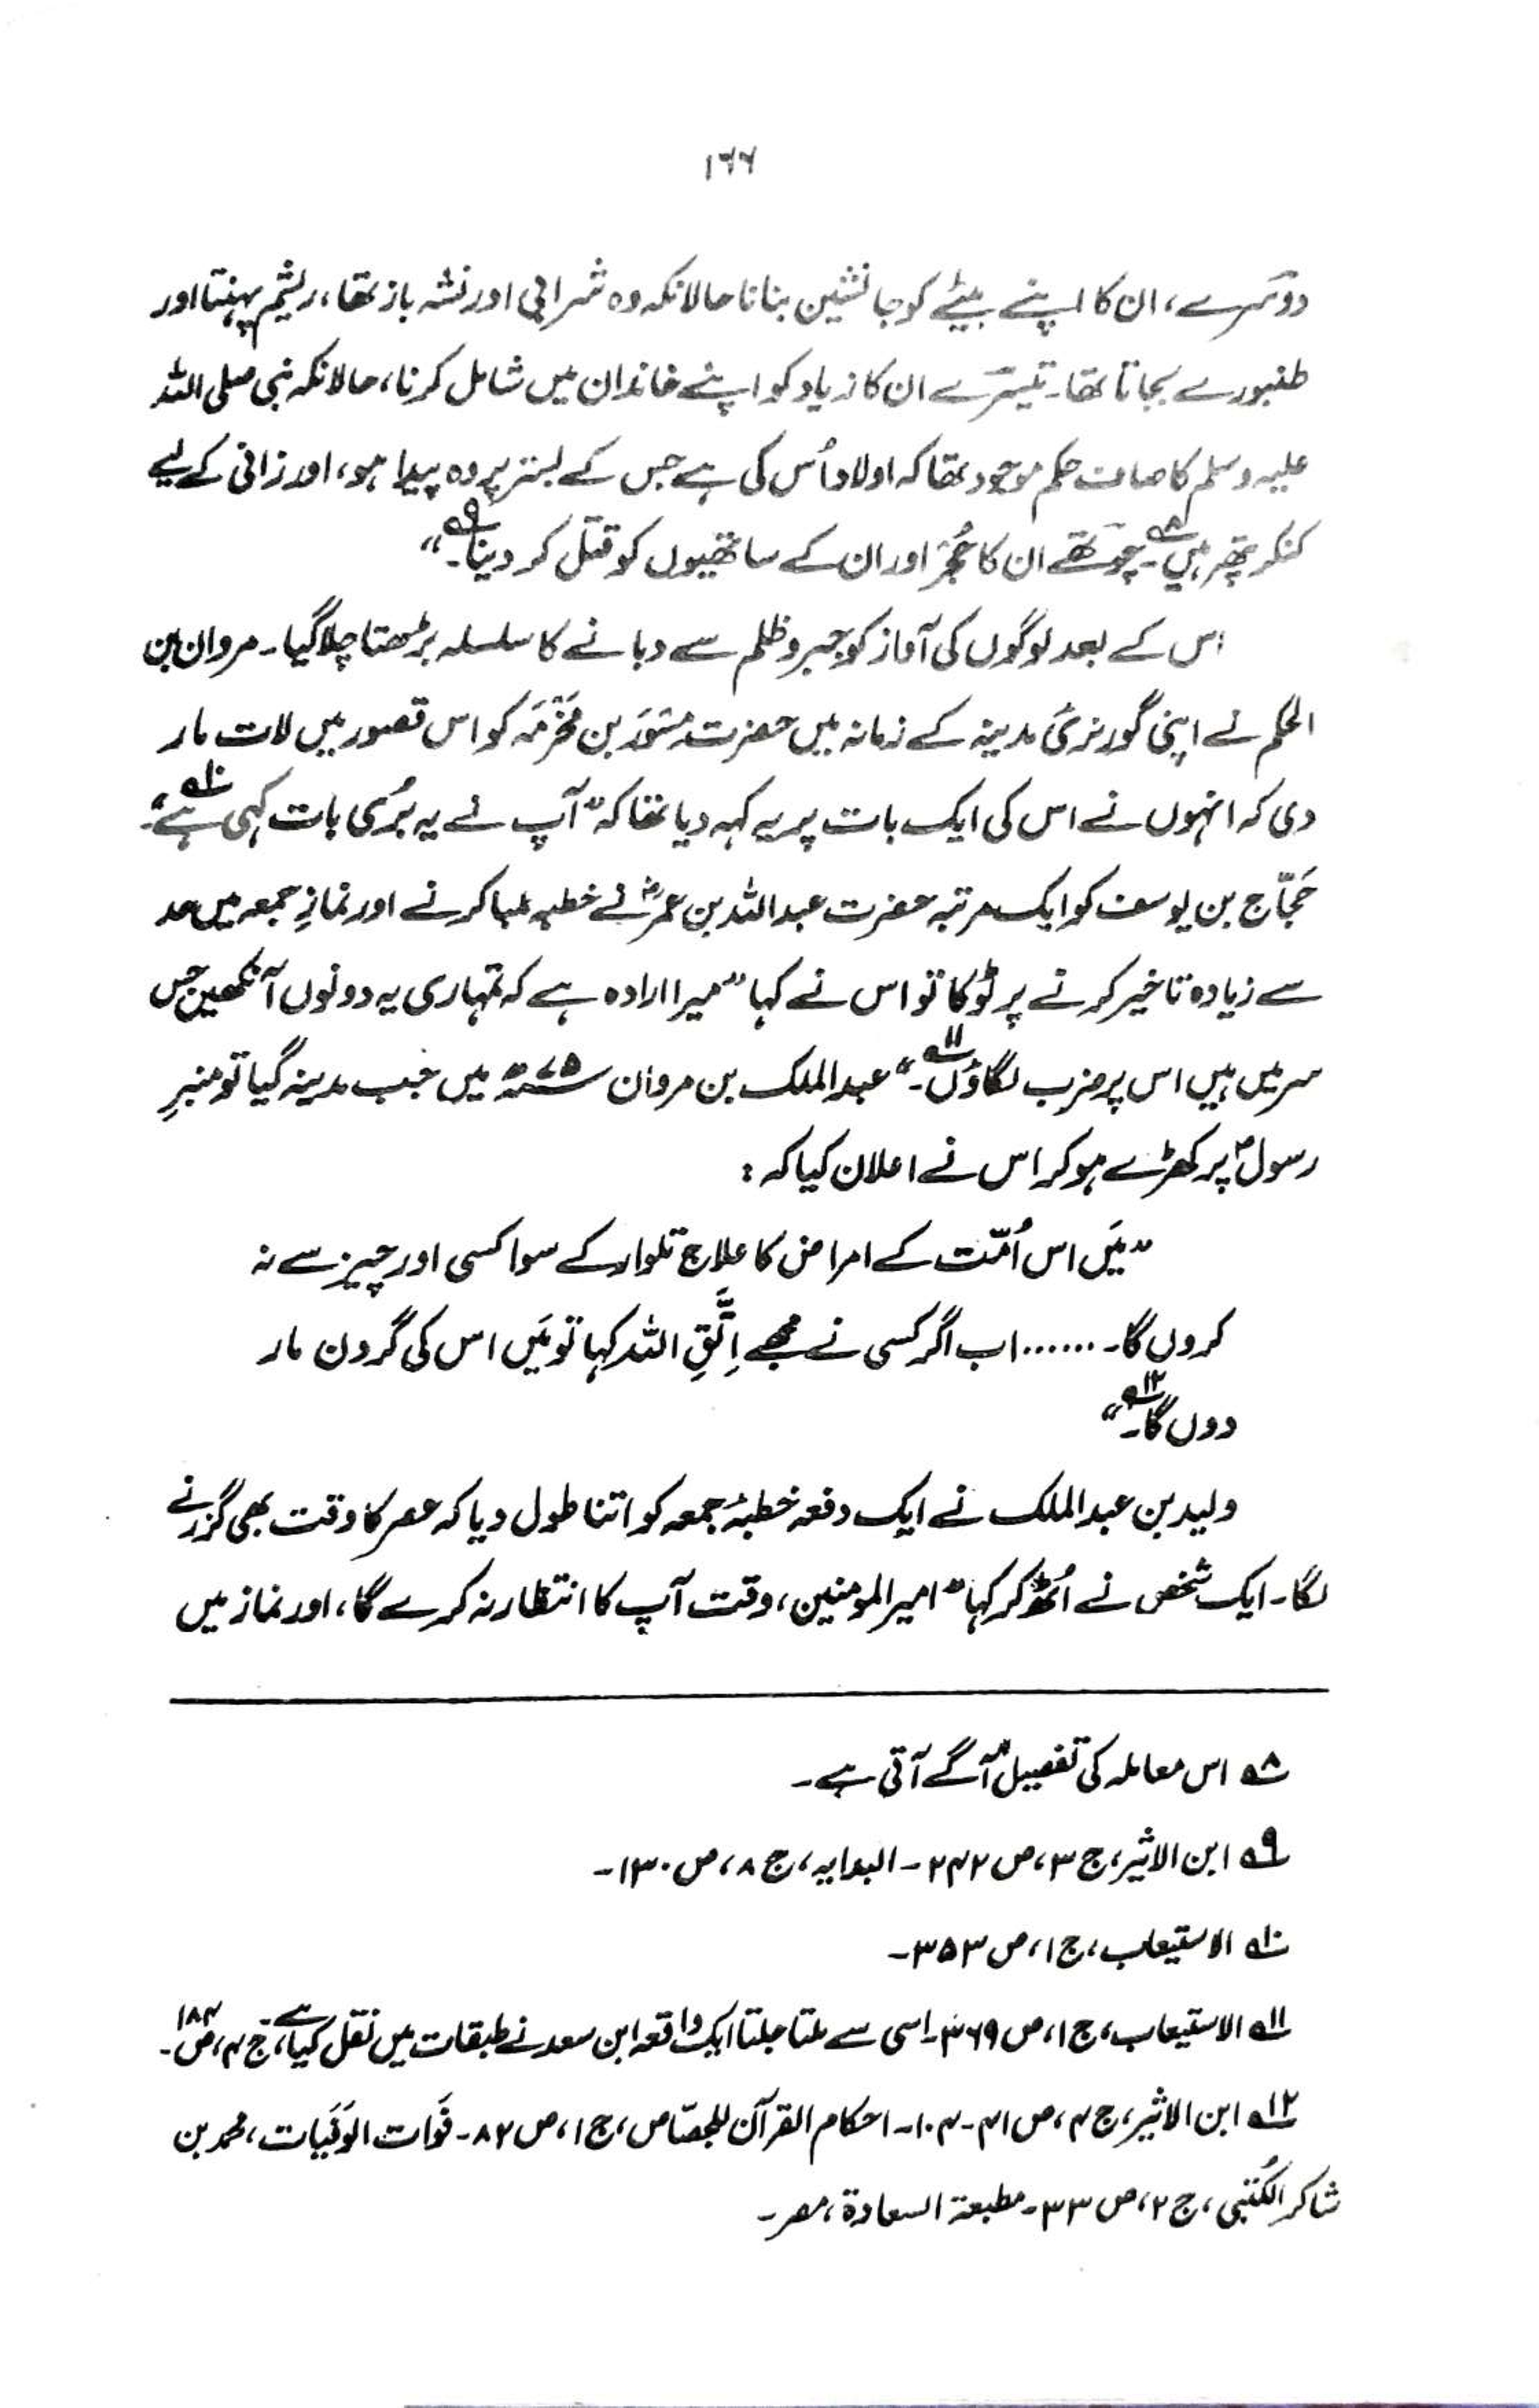 ۱۶۶
دوسرے، ان کا اپنے بیٹے کو جانشین بنانا حالانکہ وہ شرابی اور نشہ باز تھا، ریشم پہنتا اور
طنبورے بجاتا تھا۔ تیسرے ان کا زیاد کو اپنے خاندان میں شامل کرنا، حالانکہ نبی صلی اللہ
علیہ وسلم کا صاف حکم موجود تھا کہ اولاد اُس کی ہے جس کے بستر پر وہ پیدا ہو، اور زانی کے لیے
کنکر پتھر ہیں۔۸؂ چوتھے ان کا حُجْر اور ان کے ساتھیوں کو قتل کر دینا۔۹؂“
اس کے بعد لوگوں کی آواز کو جبر و ظلم سے دبانے کا سلسلہ بڑھتا چلا گیا۔ مروان بن
الحکم نے اپنی گورنریٔ مدینہ کے زمانہ میں حضرت مِسْوَر بن مَخْرَمَہ کو اس قصور میں لات مار
دی کہ انہوں نے اس کی ایک بات پر یہ کہہ دیا تھا کہ ”آپ نے یہ بُری بات کہی ہے“۔۱۰؂
حَجّاج بن یوسف کو ایک مرتبہ حضرت عبداللہ بن عمرؓ نے خطبہ لمبا کرنے اور نمازِ جمعہ میں حد
سے زیادہ تاخیر کرنے پر ٹوکا تو اس نے کہا ”میرا ارادہ ہے کہ تمہاری یہ دونوں آنکھیں جس
سر میں ہیں اس پر ضرب لگاؤں۔۱۱؂“ عبدالملک بن مروان ۷۵ھ میں جب مدینہ گیا تو منبرِ
رسولؐ پر کھڑے ہو کر اس نے اعلان کیا کہ :
”مَیں اس اُمّت کے امراض کا علاج تلوار کے سوا کسی اور چیز سے نہ
کروں گا۔ ...... اب اگر کسی نے مجھے اِتَّقِ اللہ کہا تو مَیں اس کی گردن مار
دوں گا۔۱۲؂“
ولید بن عبدالملک نے ایک دفعہ خطبۂ جمعہ کو اتنا طول دیا کہ عصر کا وقت بھی گزرنے
لگا۔ ایک شخص نے اُٹھ کر کہا ”امیرالمومنین، وقت آپ کا انتظار نہ کرے گا، اور نماز میں
۸؂ اس معاملہ کی تفصیل آگے آتی ہے۔
۹؂ ابن الاثیر، ج ۳، ص ۲۴۲۔ البدایہ، ج ۸، ص ۱۳۰۔
۱۰؂ الاستیعاب، ج ۱، ص ۳۵۳۔
۱۱؂ الاستیعاب، ج ۱، ص ۳۶۹۔ اسی سے ملتا جلتا ایک واقعہ ابن سعد نے طبقات میں نقل کیا ہے، ج ۴، ص ۱۸۴۔
۱۲؂ ابن الاثیر، ج ۴، ص ۴۱-۱۰۴۔ احکام القرآن للجصّاص، ج ۱، ص ۸۲۔ فَوَات الوَفَیَات، محمد بن
شاکر الکُتبی، ج ۲، ص ۳۳۔ مطبعۃ السعادۃ، مصر۔